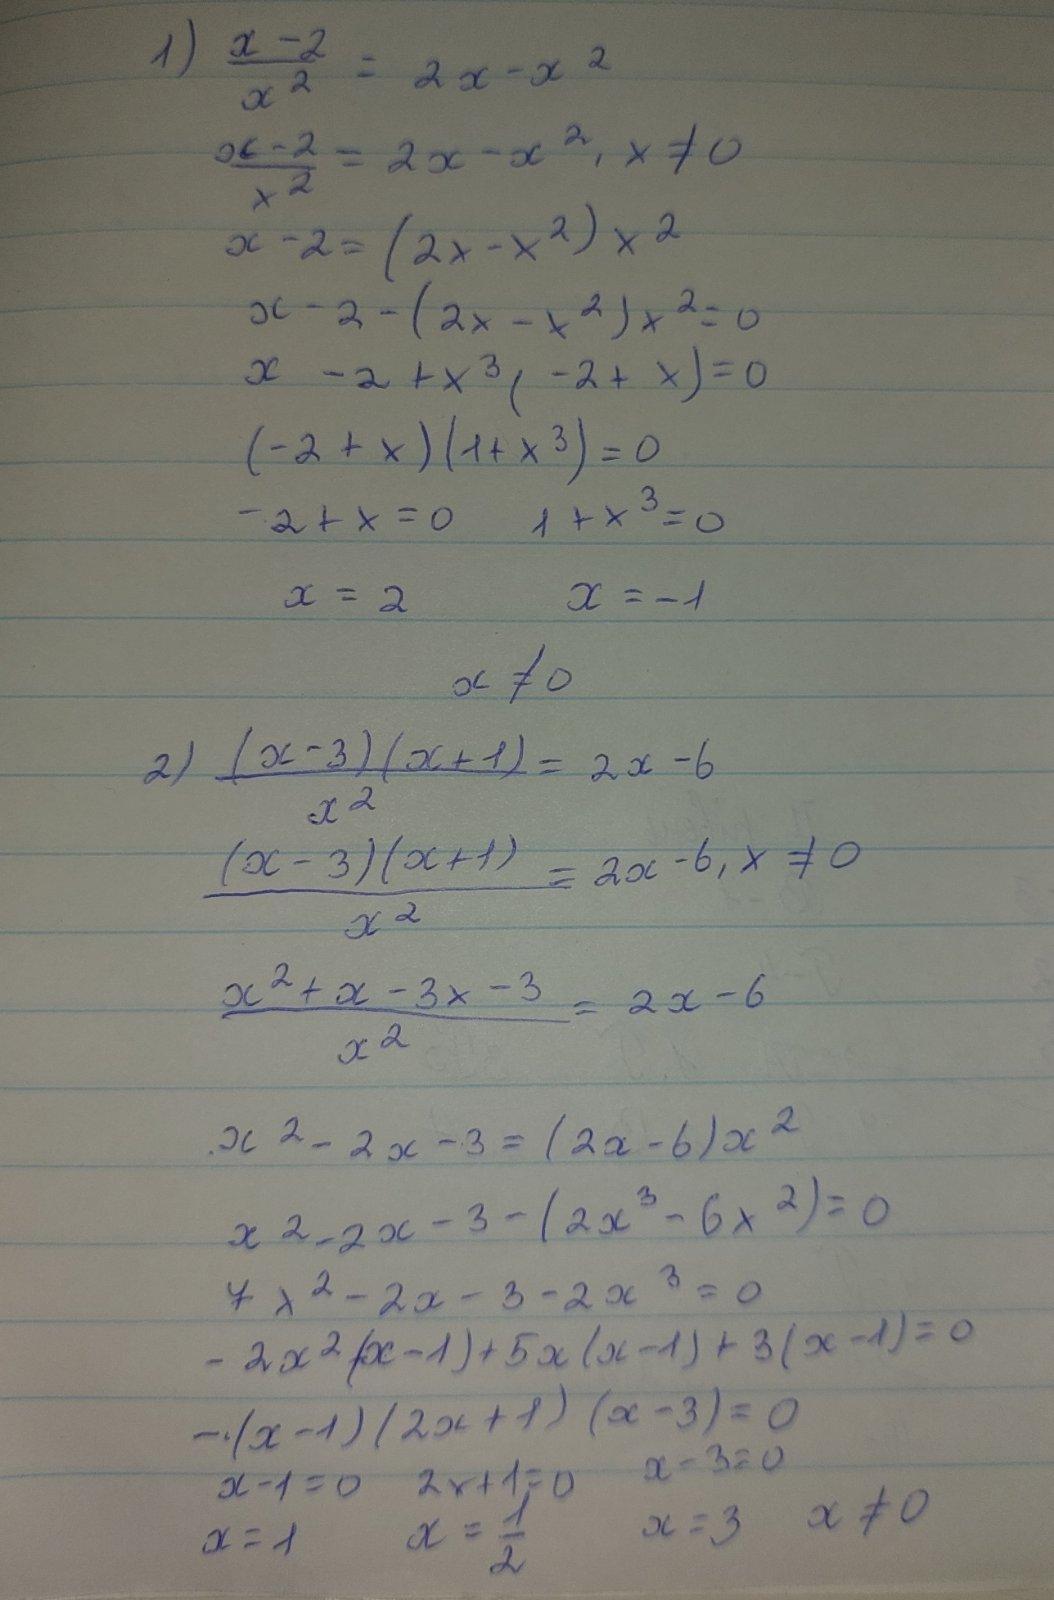 1) (x-2)/x² = 2x-x²
(x-2)/x² = 2x-x², x≠0
x-2=(2x-x²)x²
x-2-(2x-x²)x²=0
x -2+x³(-2+x)=0
(-2+x)(1+x³)=0
-2+x=0 1+x³=0
x=2 x=-1
x≠0
2) (x-3)(x+1)/x² = 2x-6
(x-3)(x+1)/x² = 2x-6, x≠0
(x²+x-3x-3)/x² = 2x-6
x²-2x-3=(2x-6)x²
x²-2x-3-(2x³-6x²)=0
7x²-2x-3-2x³=0
-2x²(x-1)+5x(x-1)+3(x-1)=0
-(x-1)(2x+1)(x-3)=0
x-1=0 2x+1=0 x-3=0
x=1 x=1/2 x=3 x≠0